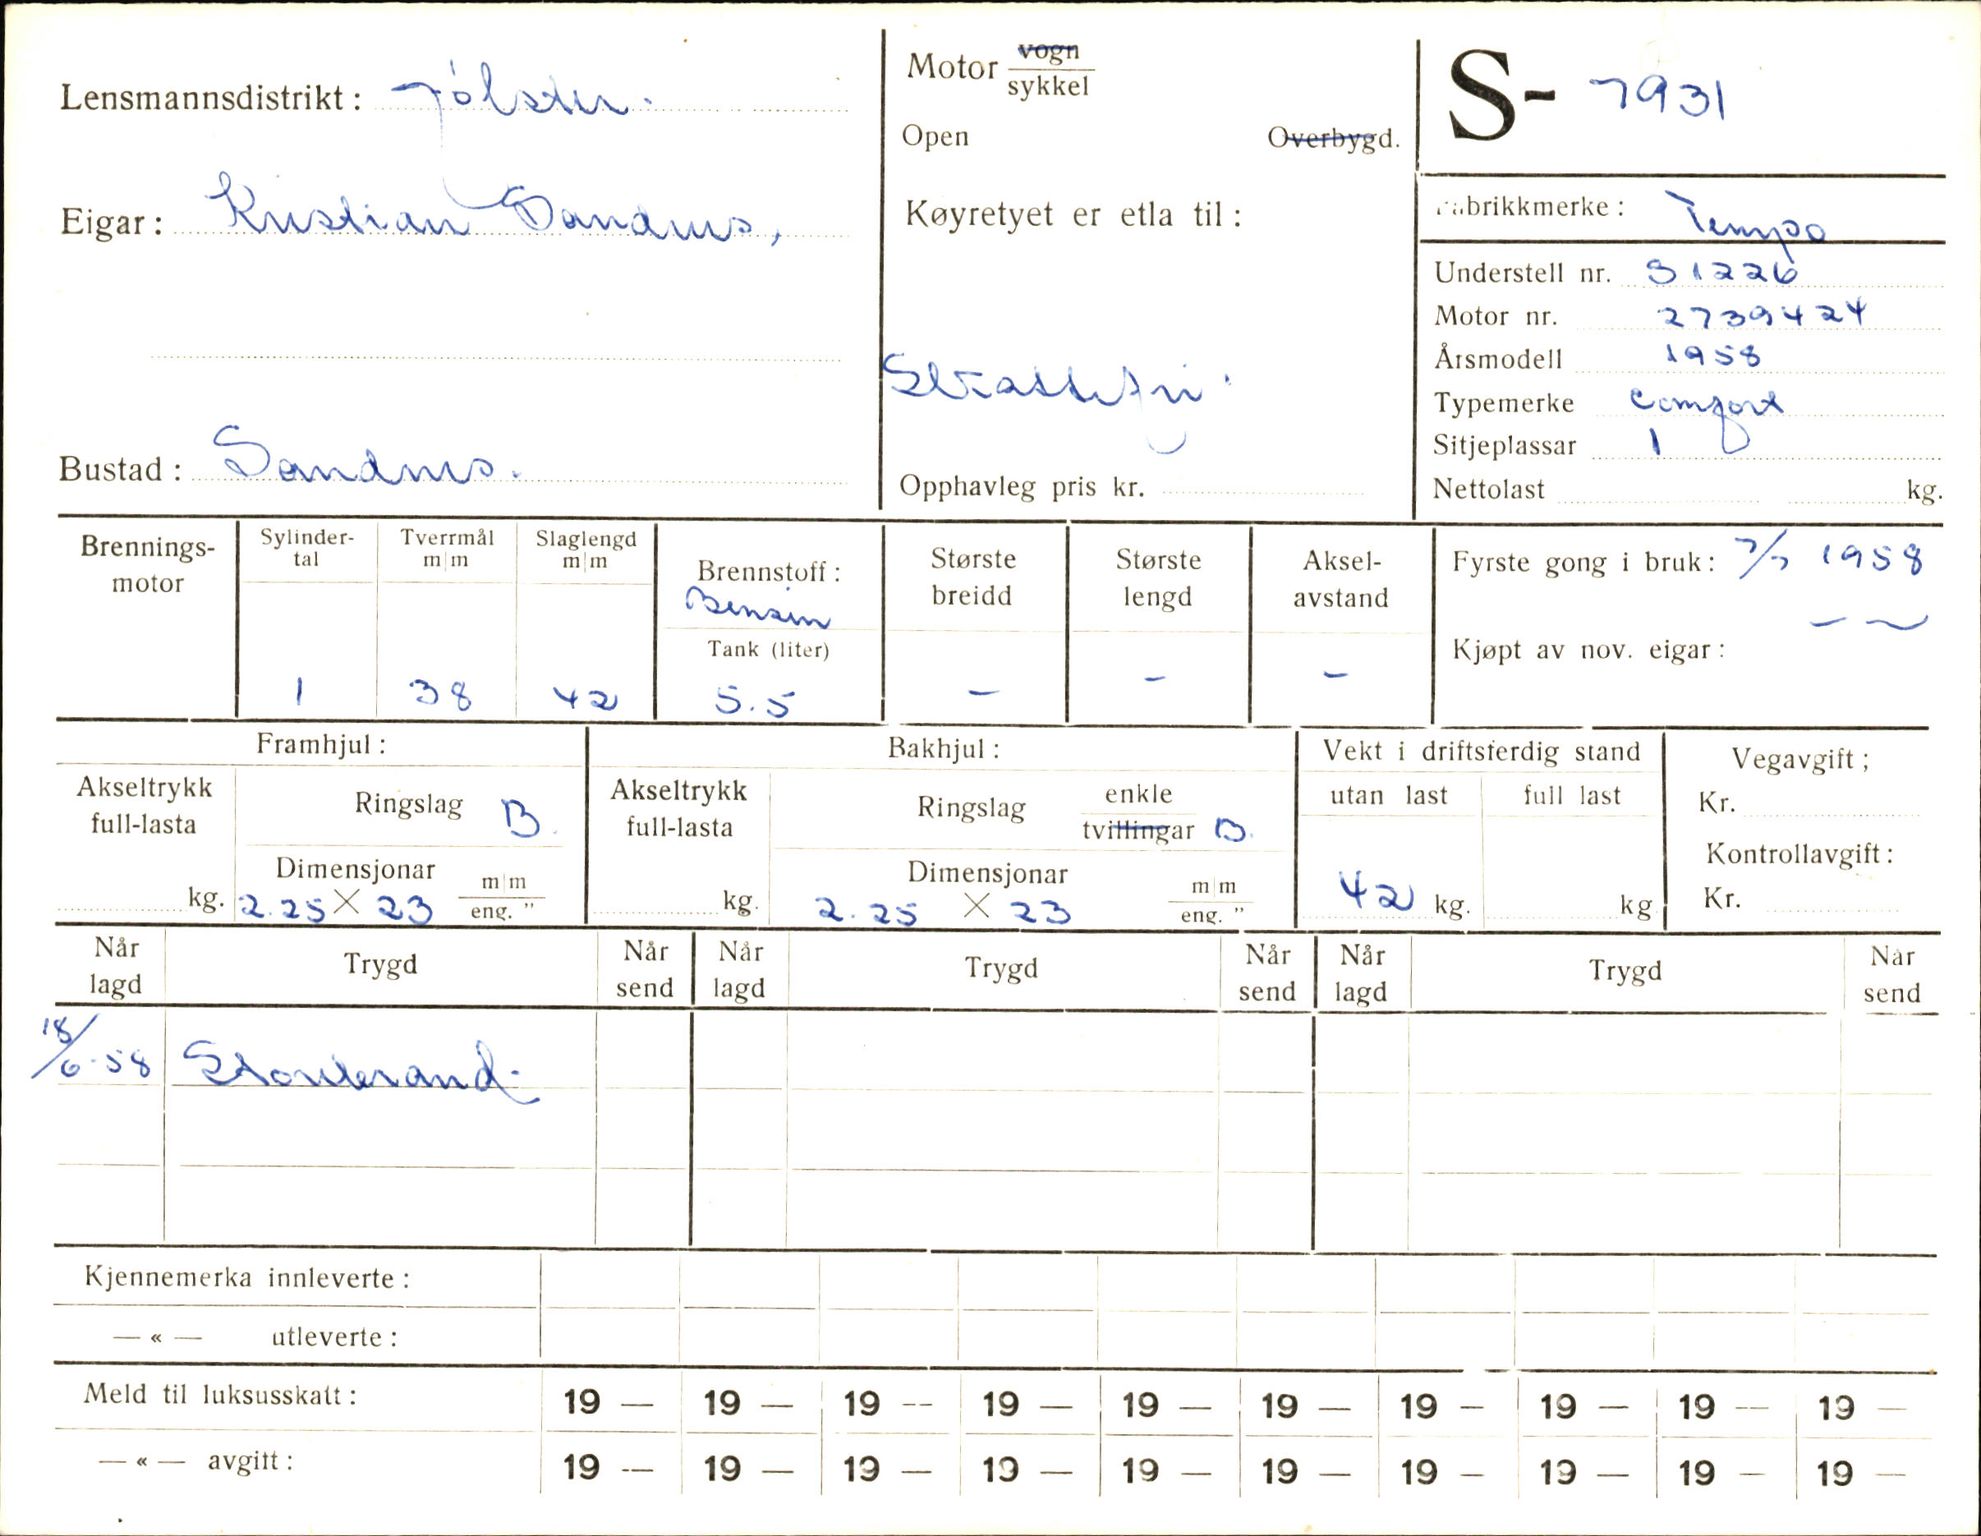 Lensmannsdistrikt: Jölster.
Eigar: Kristian Sandnes,
Bustad: Sandnes.
Motor vogn
sykkel
Open Overbygd.
Køyretyet er etla til:
Skattefri.
Opphavleg pris kr.
S- 7931
Fabrikkmerke: Tempo
Understell nr. 31226
Motor nr. 2739424
Årsmodell 1958
Typemerke Comfort
Sitjeplassar 1
Nettolast kg.
Brennings-
motor
Sylinder-
tal
1
Tverrmål
m|m
38
Slaglengd
m|m
42
Brennstoff:
Bensin
Tank (liter)
5.5
Største
breidd
–
Største
lengd
–
Aksel-
avstand
–
Fyrste gong i bruk: 7/7 1958
Kjøpt av nov. eigar: – ~
Framhjul:
Akseltrykk
full-lasta
kg.
Ringslag B.
Dimensjonar
2.25 X 23 m|m
eng. "
Bakhjul:
Akseltrykk
full-lasta
kg.
Ringslag enkle
tvillingar B.
Dimensjonar
2.25 X 23 m|m
eng. "
Vekt i driftsferdig stand
utan last full last
42 kg. kg
Vegavgift;
Kr.
Kontrollavgift:
Kr.
Når
lagd Trygd Når
send Når
lagd Trygd Når
send Når
lagd Trygd Når
send
18/6-58 Storebrand.
Kjennemerka innleverte:
— « — utleverte:
Meld til luksusskatt: 19 — 19 — 19 -- 19 — 19 — 19 — 19 – 19 — 19 -- 19 —
— « — avgitt: 19 -- 19 — 19 — 19 — 19 — 19 — 19 – 19 — 19 – 19 —